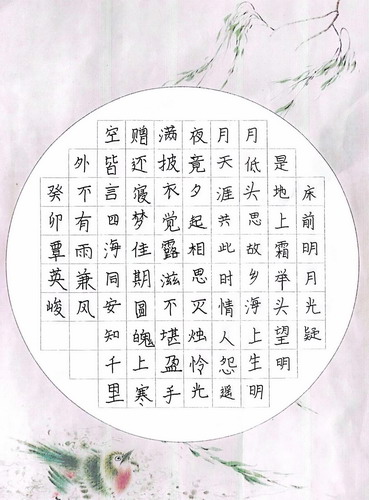 床前明月光疑
是地上霜举头望明
月低头思故乡海上生明
月天涯共此时情人怨遥
夜竟夕起相思灭烛怜光
满披衣觉露滋不堪盈手
赠还寝梦佳期圆魄上寒
空皆言四海同安知千里
外不有雨兼风
癸卯覃英峻